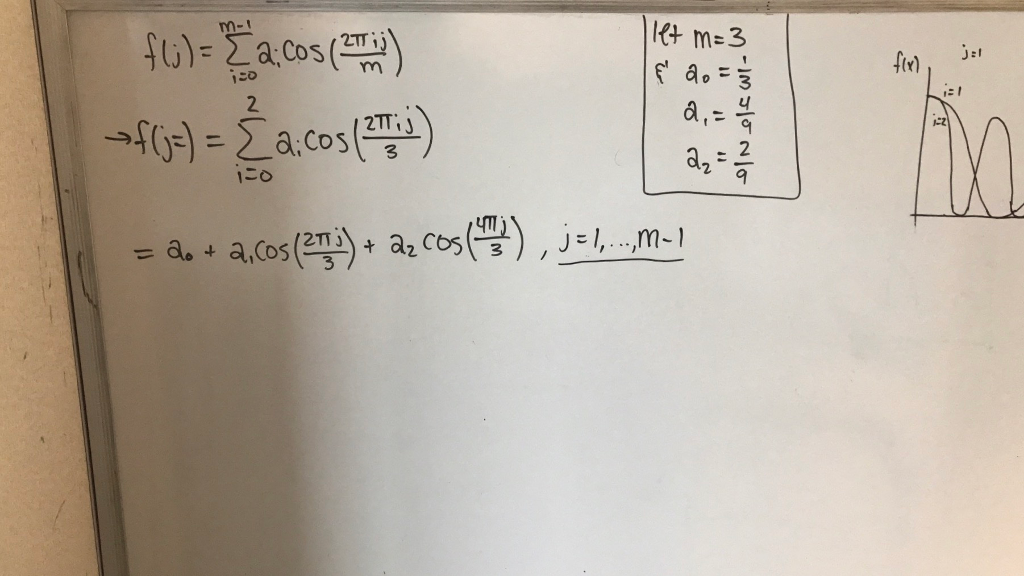 f(j) = Σ_{i=0}^{m-1} a_i cos(2πij/m)
→ f(j=) = Σ_{i=0}^{2} a_i cos(2πij/3)
= a_0 + a_1 cos(2πj/3) + a_2 cos(4πj/3) , j=1,...,m-1
let m=3
& a_0 = 1/3
a_1 = 4/9
a_2 = 2/9
f(x)
j=1
i=1
i=2